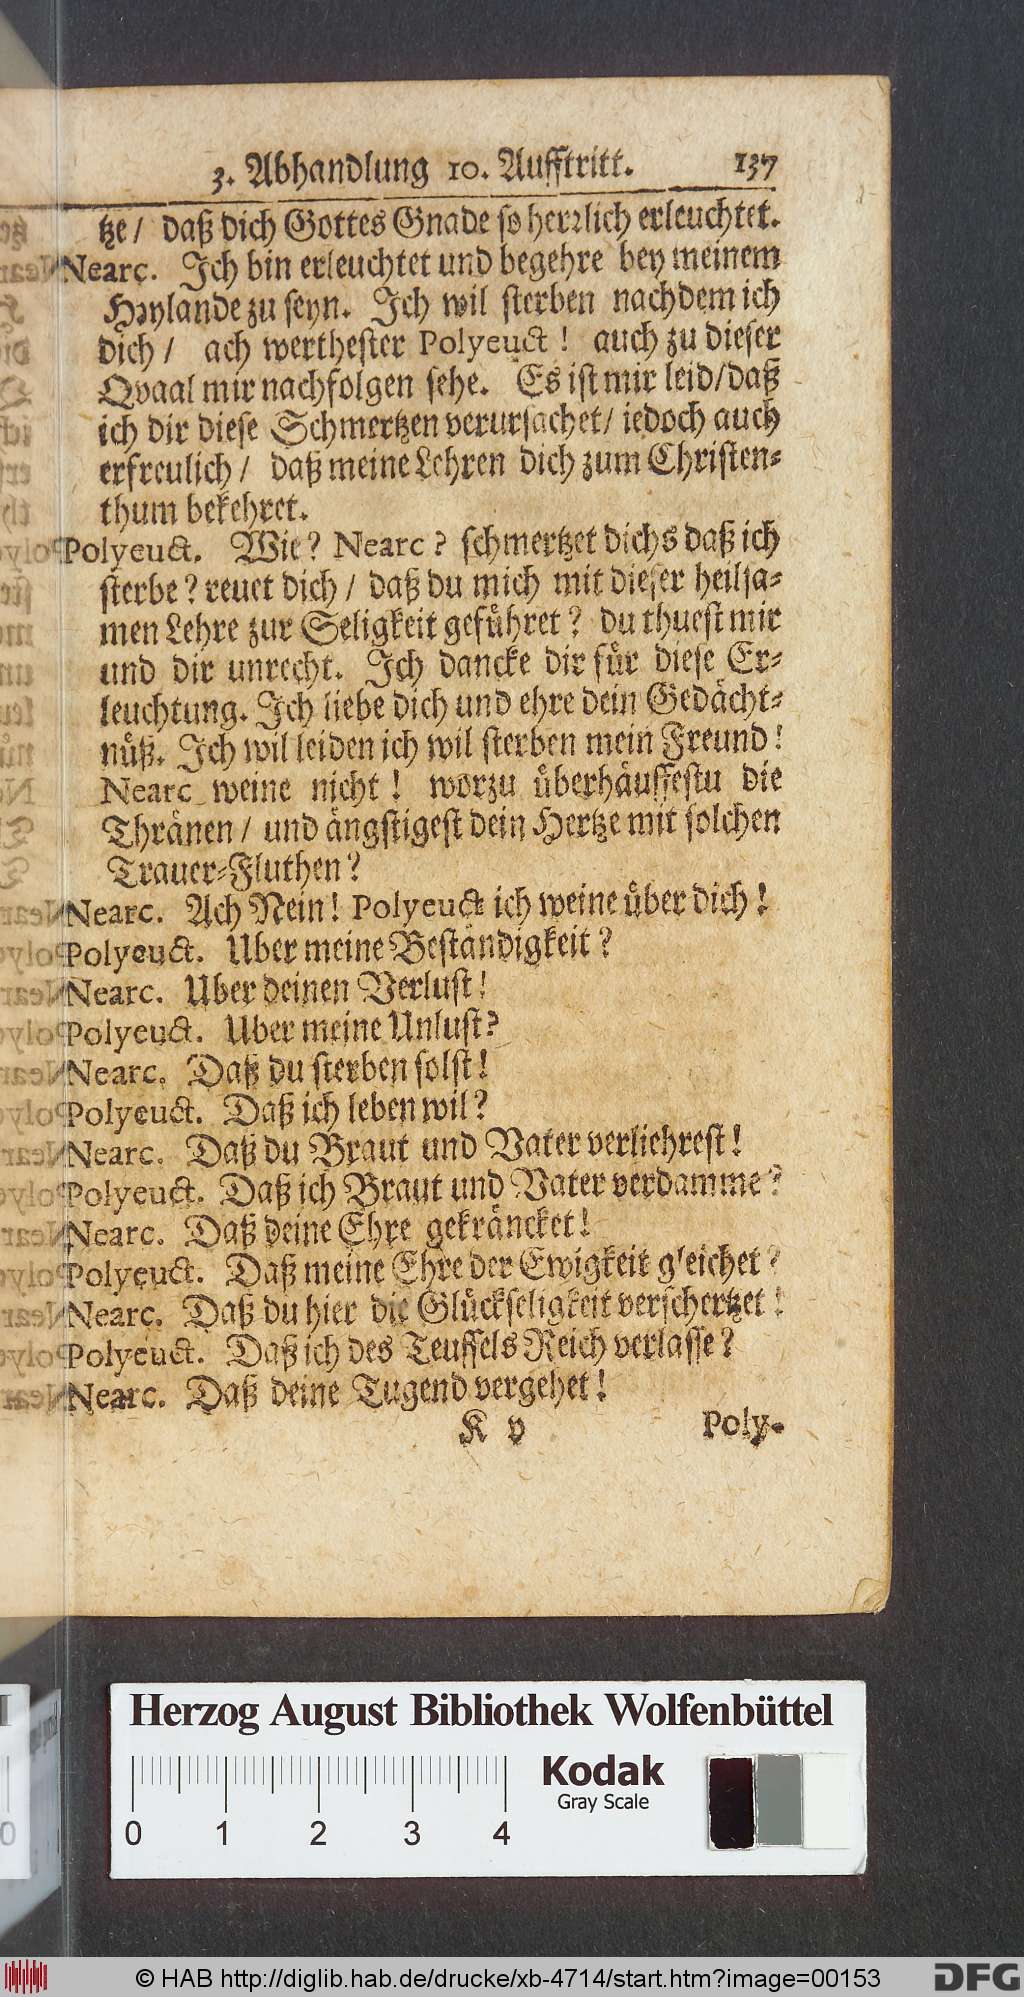 3. Abhandlung 10. Aufftritt. 137
tze / daß dich Gottes Gnade so herrlich erleuchtet.
Nearc. Ich bin erleuchtet und begehre bey meinem
Heylande zu seyn. Ich wil sterben nachdem ich
dich / ach werthester Polyeuct ! auch zu dieser
Qvaal mir nachfolgen sehe. Es ist mir leid/daß
ich dir diese Schmertzen verursachet/ iedoch auch
erfreulich / daß meine Lehren dich zum Christen-
thum bekehret.
Polyeuct. Wie? Nearc ? schmertzet dichs daß ich
sterbe ? reuet dich / daß du mich mit dieser heilsa-
men Lehre zur Seligkeit geführet ? du thuest mir
und dir unrecht. Ich dancke dir für diese Er-
leuchtung. Ich liebe dich und ehre dein Gedächt-
nüß. Ich wil leiden ich wil sterben mein Freund !
Nearc weine nicht ! worzu überhäuffestu die
Thränen / und ängstigest dein Hertze mit solchen
Trauer-Fluthen ?
Nearc. Ach Nein ! Polyeuct ich weine über dich !
Polyeuct. Uber meine Beständigkeit ?
Nearc. Uber deinen Verlust !
Polyeuct. Uber meine Unlust?
Nearc. Daß du sterben solst !
Polyeuct. Daß ich leben wil ?
Nearc. Daß du Braut und Vater verliehrest !
Polyeuct. Daß ich Braut und Vater verdamme ?
Nearc. Daß deine Ehre gekräncket !
Polyeuct. Daß meine Ehre der Ewigkeit gleichet ?
Nearc. Daß du hier die Glückseligkeit verschertzet !
Polyeuct. Daß ich des Teuffels Reich verlasse ?
Nearc. Daß deine Tugend vergehet !
K v Poly-
Herzog August Bibliothek Wolfenbüttel
Kodak
Gray Scale
0 1 2 3 4
© HAB http://diglib.hab.de/drucke/xb-4714/start.htm?image=00153
DFG